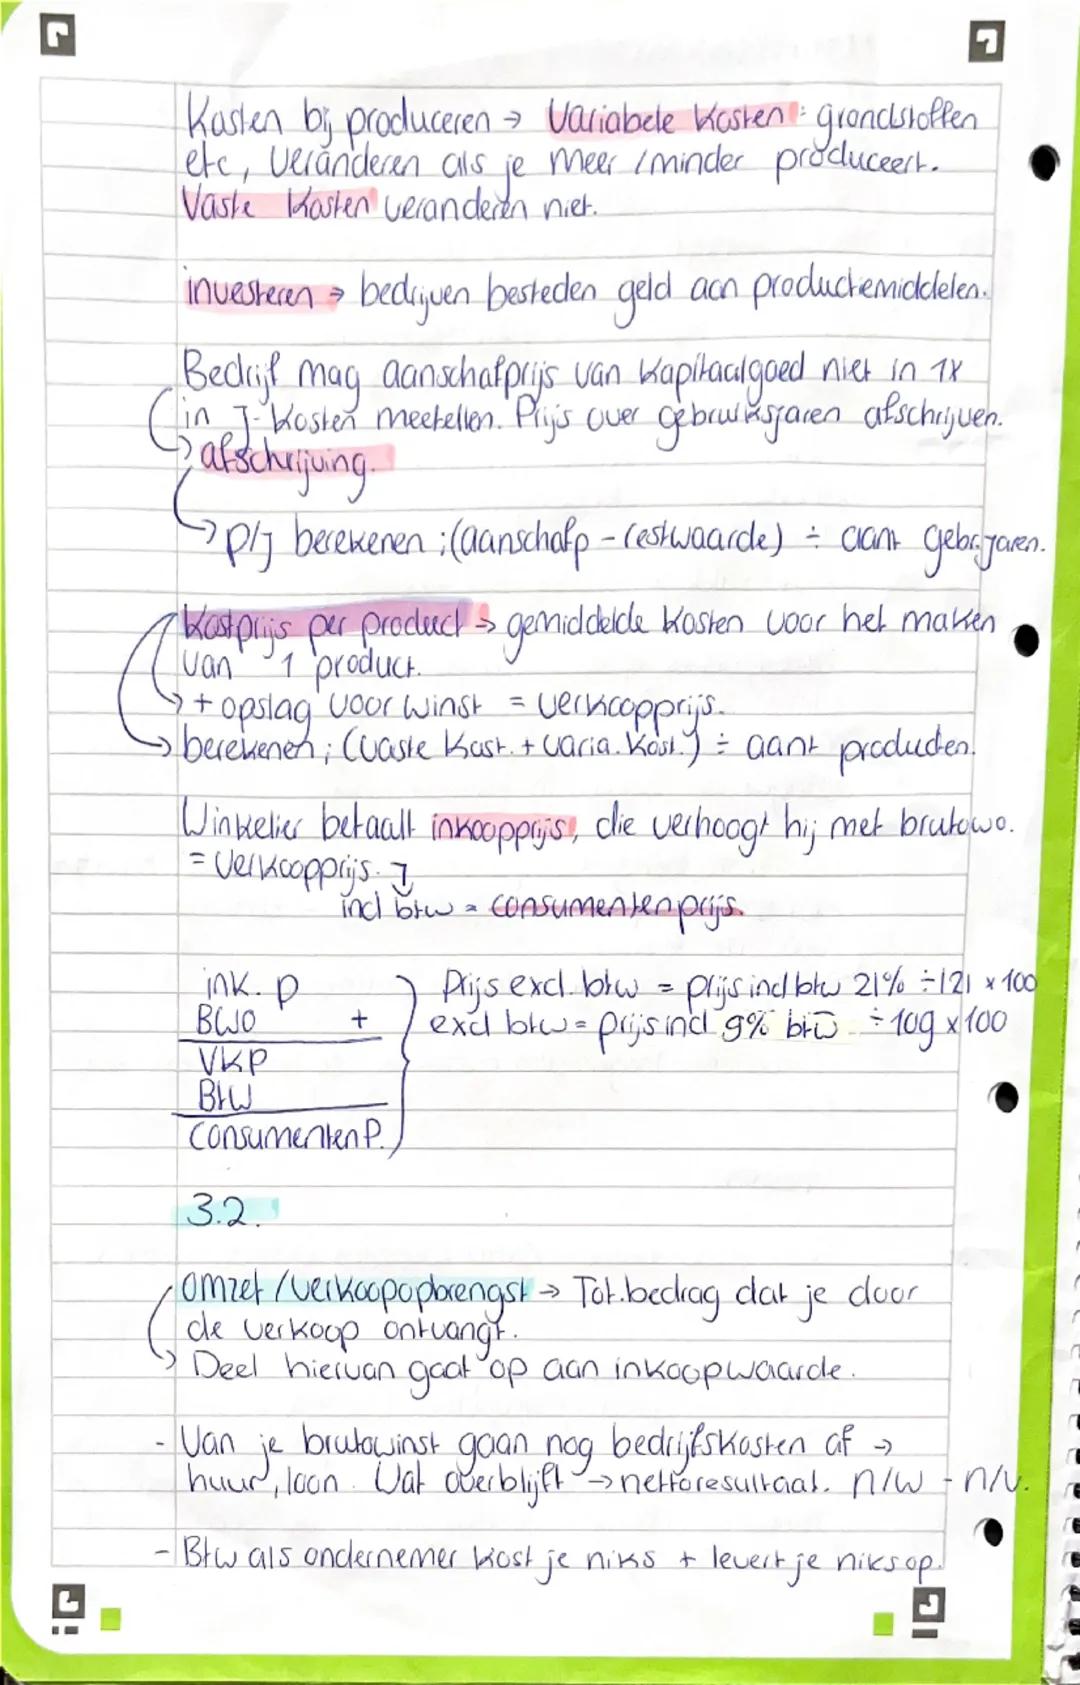 Kosten bij produceren → Variabele kosten: grondstoffen
etc, veranderen als je meer / minder produceert.
Vaste kosten veranderen niet.
investeren → bedrijven besteden geld aan productiemiddelen.
Bedrijf mag aanschafprijs van kapitaalgoed niet in 1x
in J-kosten meetellen. Prijs over gebruiksjaren afschrijven.
→ afschrijving.
→ p/j berekenen ; (aanschafp - restwaarde) ÷ aant gebr.jaren.
Kostprijs per product → gemiddelde kosten voor het maken
van 1 product.
→ + opslag voor winst = verkoopprijs.
→ berekenen ; (vaste kost. + varia. kost.) ÷ aant producten.
Winkelier betaalt inkoopprijs, die verhoogt hij met brutowo.
= verkoopprijs.
incl btw = consumentenprijs.
ink. p
BWO +
VKP
BtW
consumenten P.
Prijs excl. btw = prijs incl btw 21% ÷ 121 x 100
excl btw = prijs incl 9% btw ÷ 109 x 100
3.2.
omzet / verkoopopbrengst → Tot.bedrag dat je door
de verkoop ontvangt.
→ Deel hiervan gaat op aan inkoopwaarde.
- Van je brutowinst gaan nog bedrijfskosten af →
huur, loon. Wat overblijft → nettoresultaat. n/w - n/v.
- Btw als ondernemer kost je niks + levert je niks op.